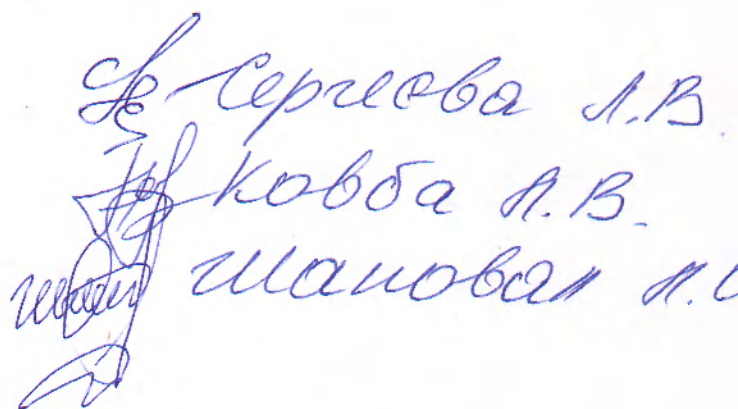 Сергеева Л.В.
Ковба А.В.
Шаповал